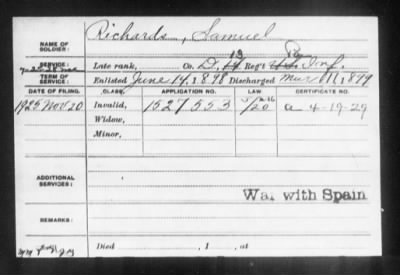 Richards, Samuel
NAME OF SOLDIER:
SERVICE: Late rank, Co. D, 13 Reg't Pa Inf.
TERM OF SERVICE: Enlisted June 14, 1898 Discharged Mar 11, 1899
DATE OF FILING. CLASS. APPLICATION NO. LAW CERTIFICATE NO.
1925 Nov 20 Invalid, 1527553 a 4-19-29
Widow,
Minor,
ADDITIONAL SERVICES:
War with Spain
REMARKS:
Died , 1 , at